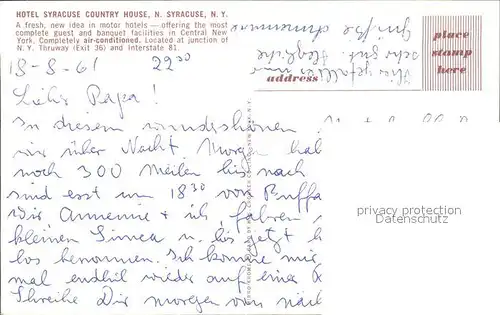 HOTEL SYRACUSE COUNTRY HOUSE, N. SYRACUSE, N. Y.
A fresh, new idea in motor hotels — offering the most
complete guest and banquet facilities in Central New
York. Completely air-conditioned. Located at junction of
N. Y. Thruway (Exit 36) and Interstate 81.
place
stamp
here
address
18-8-61 22³⁰
Lieber Papa!
In diesem wunderschönen
wir über Nacht Morgen hab
noch 300 Meilen bis nach
sind erst um 18³⁰ von Buffa
Wir Annemie + ich, fahren
kleinen Simca u. los jetzt
los benommen. Ich komme mir
mal endlich wieder auf einer
Schreibe Dir morgen von
Hier gefällt mir
sehr gut. Herzliche
Grüße Annemie
privacy protection
Datenschutz